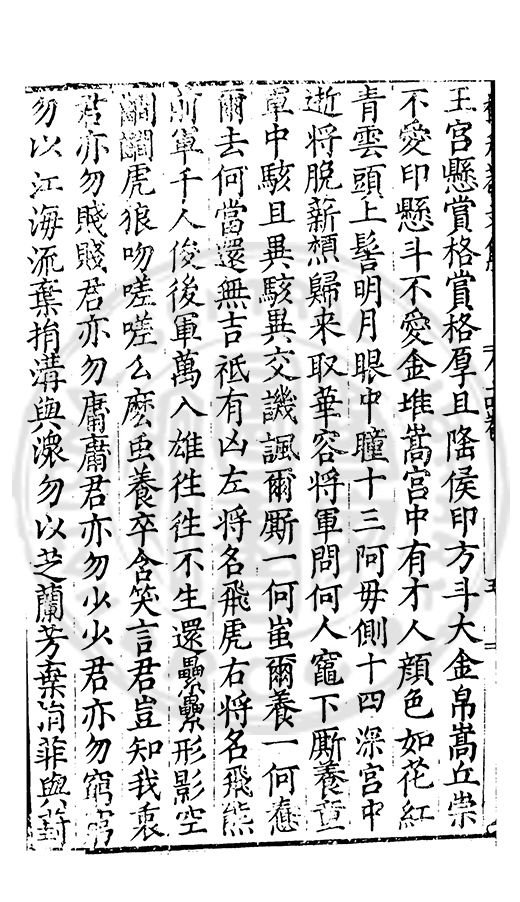 王宮懸賞格賞格厚且隆侯印方斗大金帛嵩丘崇
不愛印懸斗不愛金堆嵩宮中有才人顔色如花紅
青雲頭上髻明月眼中瞳十三阿母側十四深宮中
逝將脫薪顏歸来取華容將軍問何人竈下厮養童
軍中駭且異駭異交譏諷爾厮一何蚩爾養一何憃
爾去何當還無吉祗有凶左將名飛虎右將名飛熊
前軍千人俊後軍萬人雄徃徃不生還纍纍形影空
嚙虎狼吻嗟嗟么麽虫養卒含笑言君豈知我衷
君亦勿賤賤君亦勿庸庸君亦勿少少君亦勿窮窮
勿以江海流棄捐溝與濃勿以芝蘭芳棄捐菲與葑